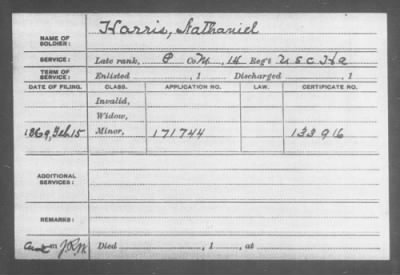 NAME OF SOLDIER: Harris, Nathaniel
SERVICE: Late rank, P Co. M, 14 Reg't U S C H A
TERM OF SERVICE: Enlisted , 1 Discharged , 1
DATE OF FILING. CLASS. APPLICATION NO. LAW. CERTIFICATE NO.
Invalid,
Widow,
1869, Feb. 15 Minor, 171744 133916
ADDITIONAL SERVICES:
REMARKS:
Died , 1 , at